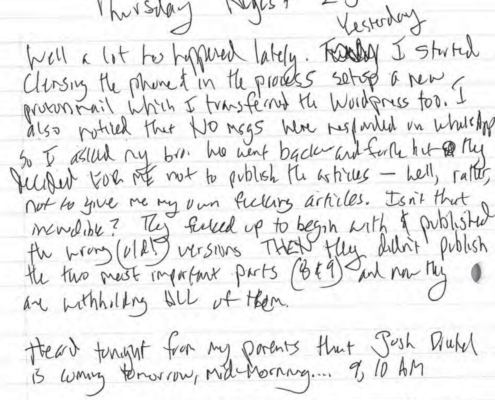 Thursday August 2
Yesterday
Well a lot has happened lately. Today I started
cleansing the phone & in the process setup a new
protonmail which I transferred the Wordpress too. I
also noticed that NO msgs were responded on WhatsApp
so I asked my bro. We went back and forth but they
DECIDED FOR ME not to publish the articles – hell, rather,
not to give me my own fucking articles. Isn't that
incredible? They fucked up to begin with & published
the wrong (old!) versions THEN they didn't publish
the two most important parts (8 & 9) and now they
are withholding ALL of them.
Heard tonight from my parents that Josh
is coming tomorrow, mid-morning.... 9, 10 AM